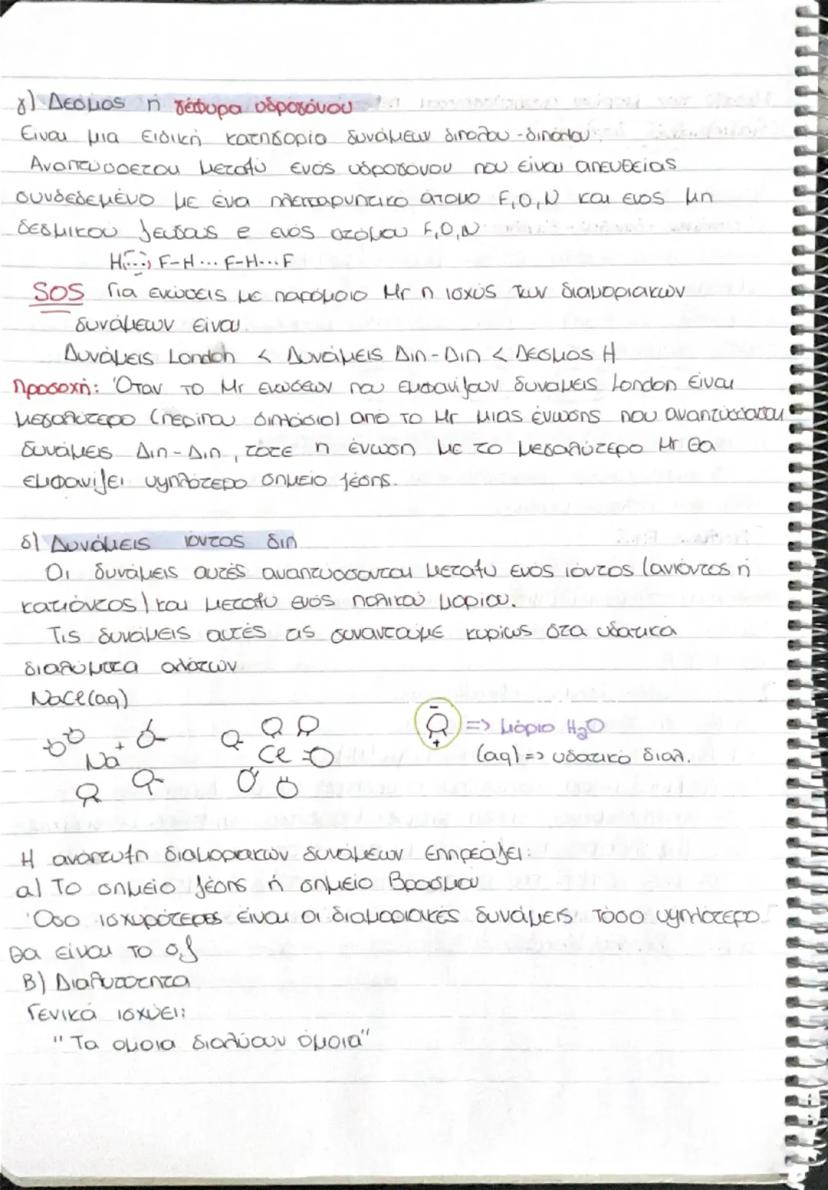 γ) Δεσμός ή γέφυρα υδρογόνου
Είναι μια ειδική κατηγορία δυνάμεων διπόλου-διπόλου.
Αναπτύσσεται μεταξύ ενός υδρογόνου που είναι απευθείας
συνδεδεμένο με ένα ηλεκτραρνητικό άτομο F,O,N και ενός μη
δεσμικού ζεύγους e ενός ατόμου F,O,N
H F-H... F-H...F
SOS Για ενώσεις με παρόμοιο Mr η ισχύς των διαμοριακών
δυνάμεων είναι
Δυνάμεις London < Δυνάμεις Διπ-Διπ < Δεσμος Η
Προσοχή: Όταν το Mr ενώσεων που εμφανίζουν δυνάμεις London είναι
μεγαλύτερο (περίπου διπλάσιο) από το Mr μιας ένωσης που αναπτύσσεται
δυνάμεις Διπ-Διπ, τότε η ένωση με το μεγαλύτερο Mr θα
εμφανίζει υψηλότερο σημείο ζέσης.
δ) Δυνάμεις ιόντος διπ
Οι δυνάμεις αυτές αναπτύσσονται μεταξύ ενός ιόντος (ανιόντος ή
κατιόντος) και μεταξύ ενός πολικού μορίου.
Τις δυνάμεις αυτές τις συναντούμε κυρίως στα υδατικά
διαλύματα αλάτων
NaCl(aq)
Na+ Cl- - + => μόριο H₂O
(aq) => υδατικό διαλ.
Η αναπτυξη διαμοριακών δυνάμεων επηρεάζει:
α) Το σημείο ζέσης ή σημείο βρασμού
Όσο ισχυρότερες είναι οι διαμοριακές δυνάμεις τόσο υψηλότερο
θα είναι το σ.ζ
Β) Διαλυτότητα
Γενικά ισχύει:
"Τα ομοια διαλύουν όμοια"